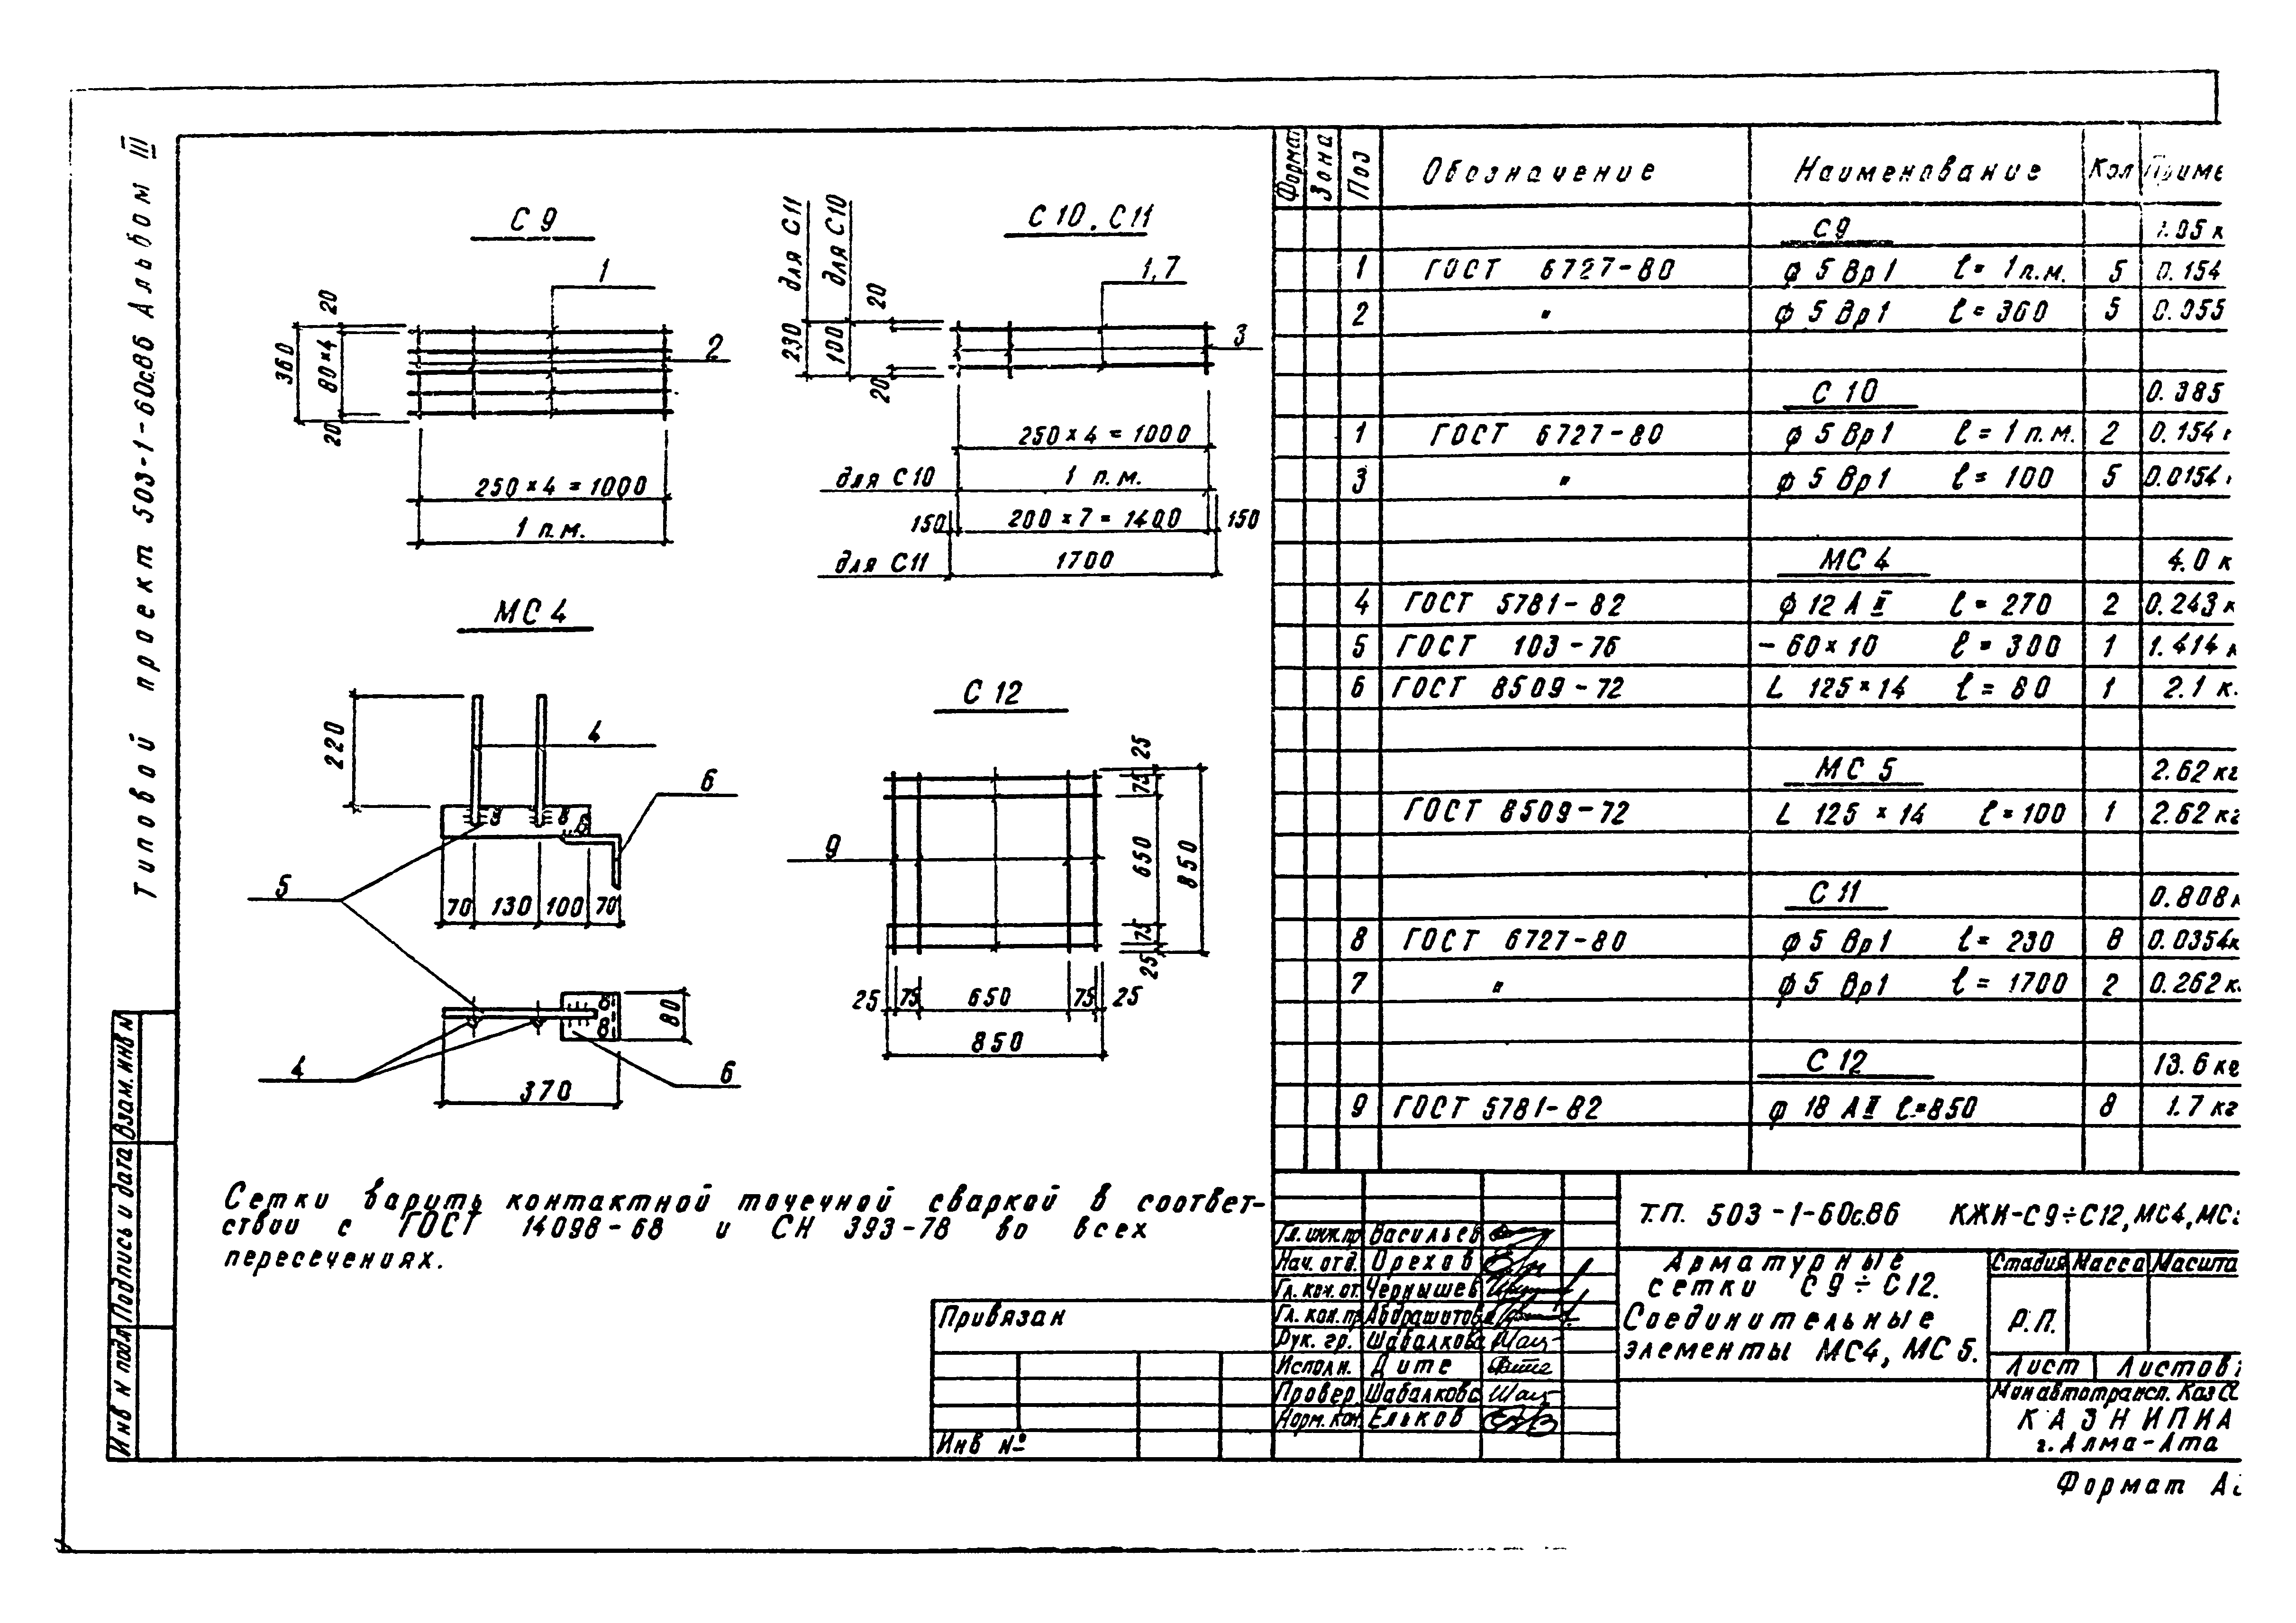 Типовой проект 503-1-60с.86 Альбом III
С 9
1
2
20
360
80×4
20
250×4=1000
1 п.м.
С 10, С11
для С11
для С10
20
230
100
20
1,7
3
250×4=1000
для С10 1 п.м.
150 200×7=1400 150
для С11 1700
МС 4
220
4
6
8 8 8
5
70 130 100 70
8
8
80
4
6
370
С 12
9
25
75
650
850
75
25
25 75 650 75 25
850
Сетки варить контактной точечной сваркой в соответ-
ствии с ГОСТ 14098-68 и СН 393-78 во всех
пересечениях.
Зона Поз Обозначение Наименование Кол
С9
1 ГОСТ 6727-80 ф 5 Вр1 ℓ= 1п.м. 5 0.154
2 " ф 5 Вр1 ℓ=360 5 0.055
С 10 0.385
1 ГОСТ 6727-80 ф 5 Вр1 ℓ=1 п.м. 2 0.154
3 " ф 5 Вр1 ℓ= 100 5 0.0154
МС 4 4.0 к
4 ГОСТ 5781-82 ф 12 А II ℓ= 270 2 0.243 к
5 ГОСТ 103-76 - 60×10 ℓ= 300 1 1.414 к
6 ГОСТ 8509-72 L 125×14 ℓ= 80 1 2.1 к
МС 5 2.62 кг
ГОСТ 8509-72 L 125×14 ℓ=100 1 2.62 кг
С 11 0.808
8 ГОСТ 6727-80 ф 5 Вр1 ℓ= 230 8 0.0354к
7 " ф 5 Вр1 ℓ= 1700 2 0.262 к
С 12 13.6 кг
9 ГОСТ 5781-82 ф 18 АII ℓ=850 8 1.7 кг
Т.П. 503-1-60с.86 КЖИ-С9÷С12, МС4, МС
Гл. инж.пр Васильев
Нач. отд. Орехов
Гл. кон. от. Чернышев
Гл. кон. пр
Рук. гр. Шабалкова
Исполн. Дите
Провер. Шабалкова
Норм. кон. Ельков
Арматурные
сетки С 9 ÷ С12.
Соединительные
элементы МС4, МС 5.
Стадия Масса Масшта
Р.П.
Лист Листов 1
Минавтотрансп. Каз
КАЗНИПИА
г. Алма-Ата
Привязан
Инв №
Взам. инв №
Подпись и дата
Инв № подл
Формат А